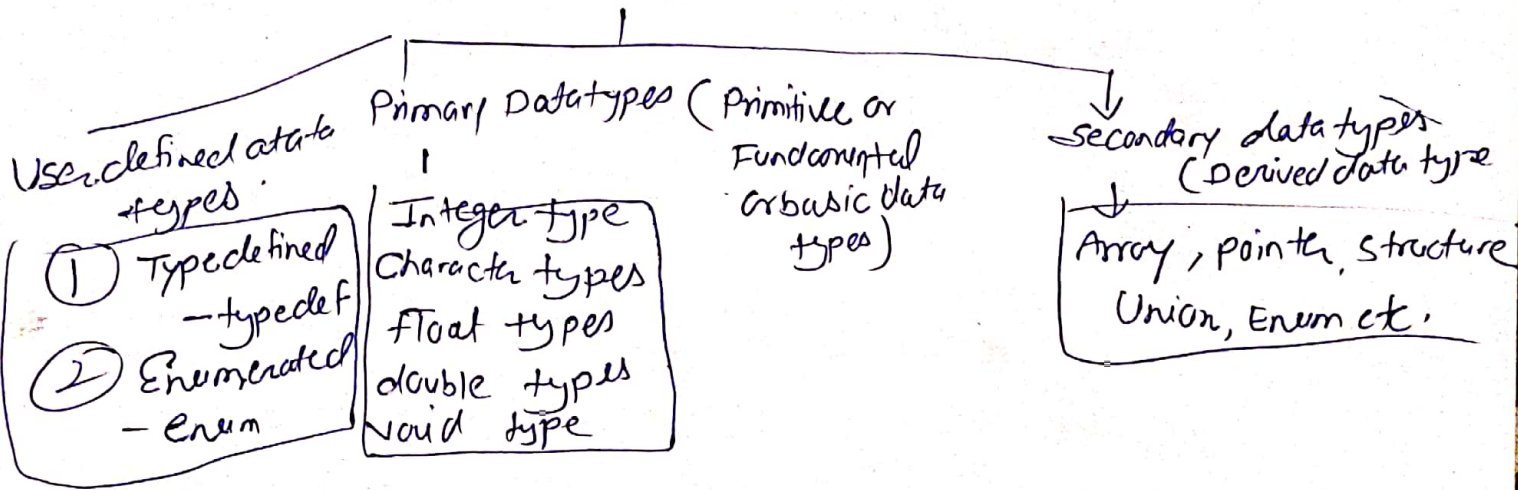 User defined data
types.
① Typedefined
- typedef
② Enumerated
- enum
Primary Datatypes (Primitive or
Fundamental
or basic data
types)
Integer type
Character types
float types
double types
void type
Secondary data types
(Derived data type
Array, pointer, structure
Union, Enum etc.